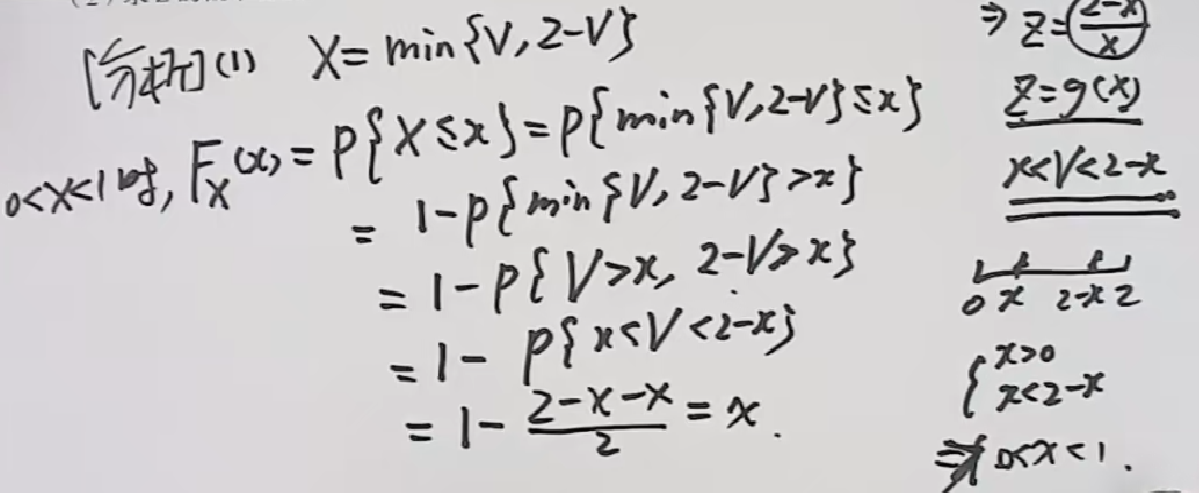 [分析](1) X=min{V,2-V}
0<x<1时, F_X(x)=P{X≤x}=P{min{V,2-V}≤x}
=1-P{min{V,2-V}>x}
=1-P{V>x, 2-V>x}
=1-P{x<V<2-x}
=1-\frac{2-x-x}{2}=x.
⇒ Z=\frac{2-X}{X}
Z=g(X)
x<V<2-x
0 x 2-x 2
{x>0
x<2-x
⇒ 0<x<1.